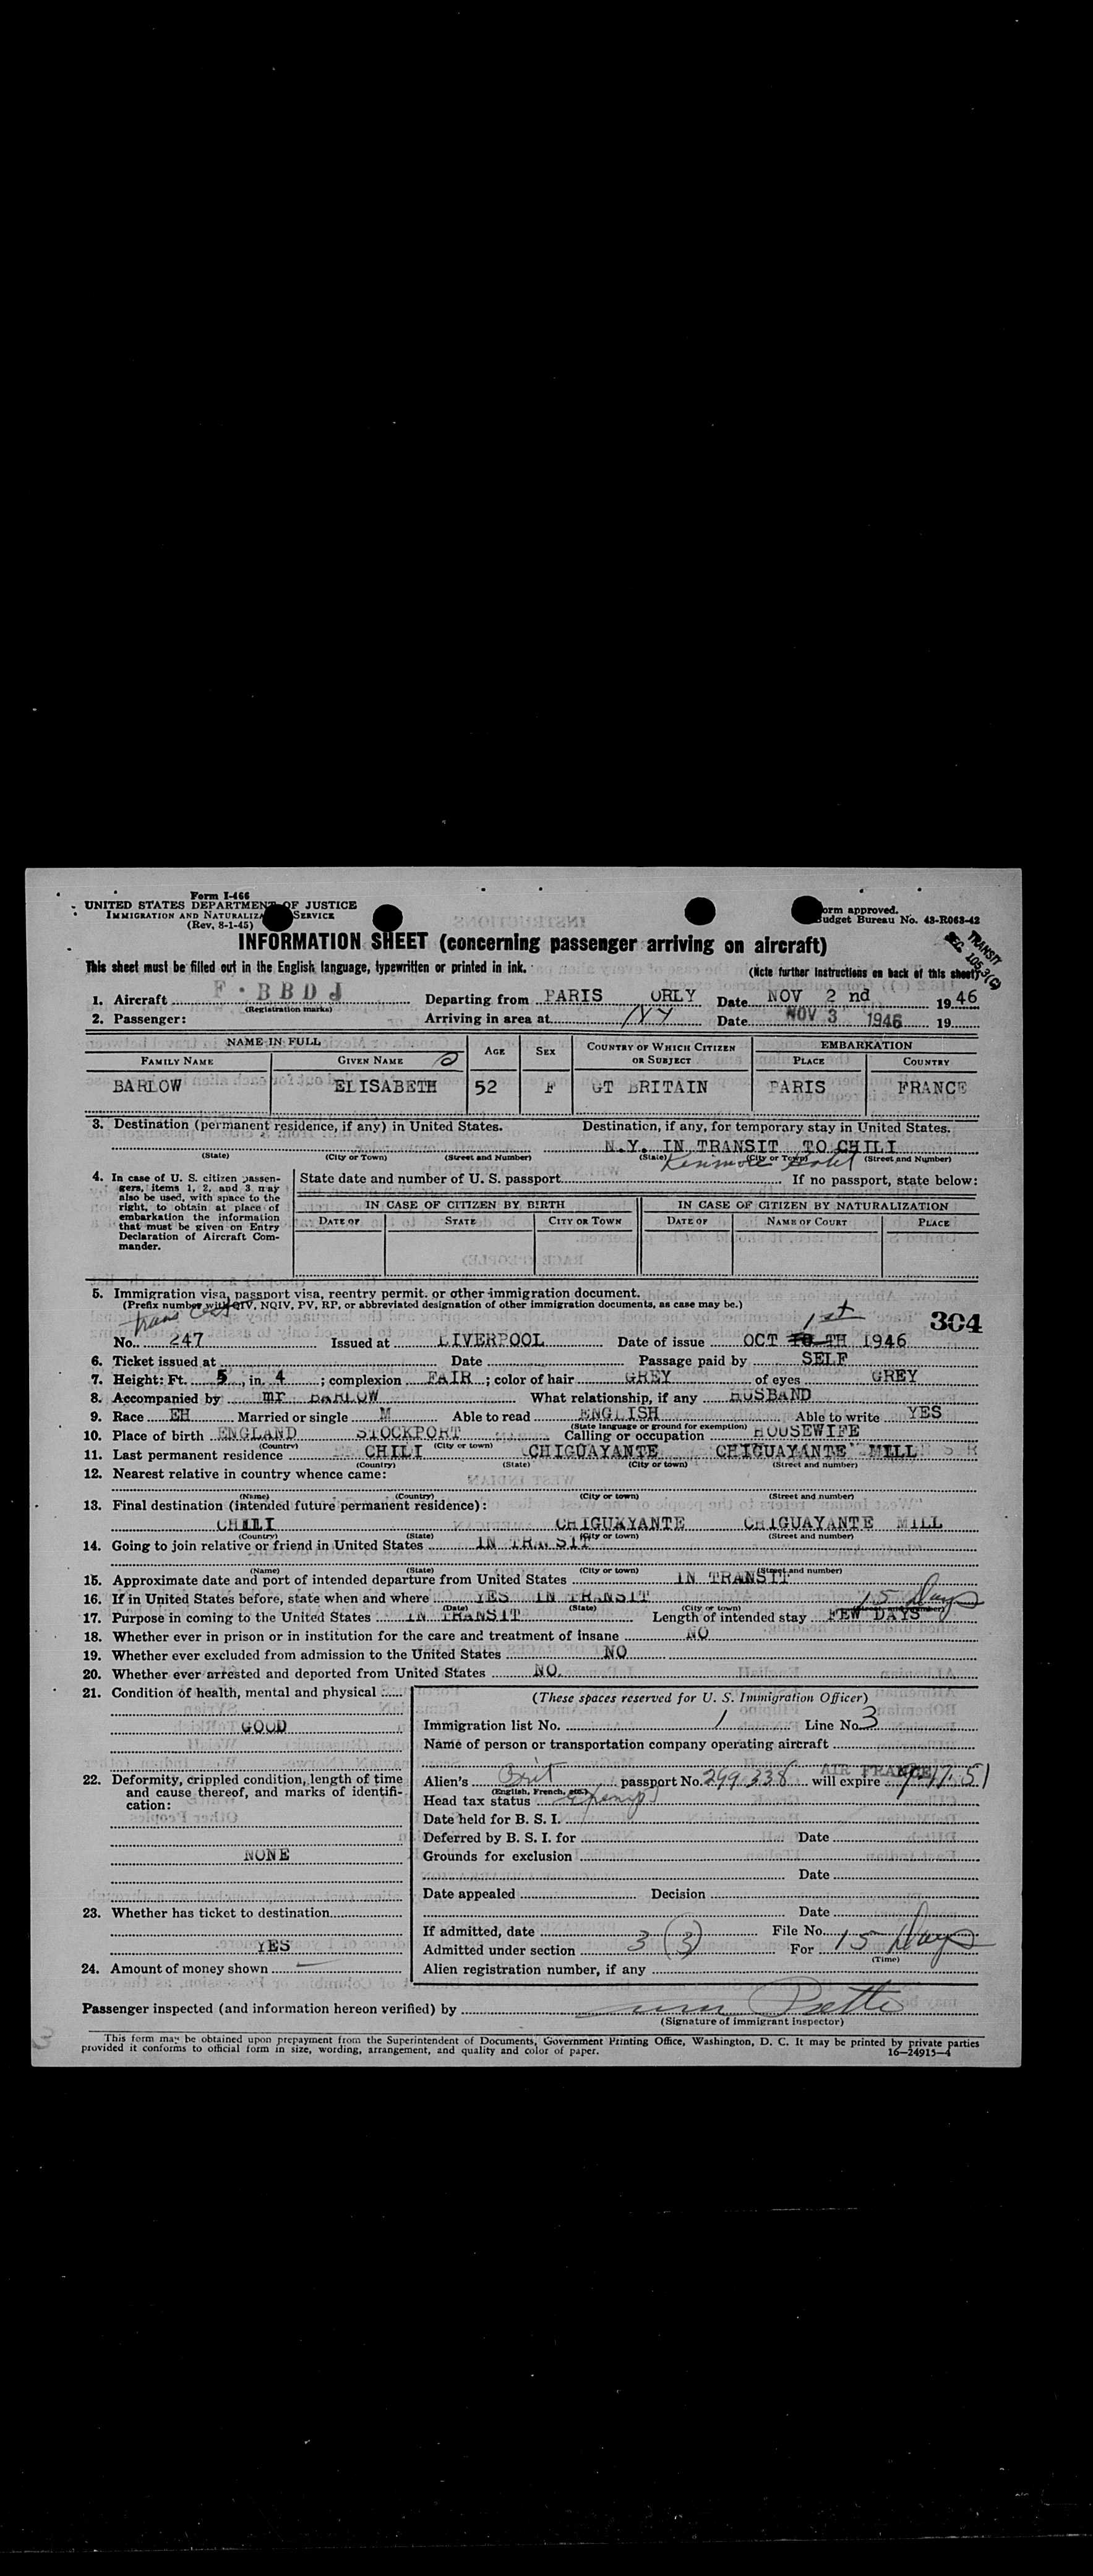 Form I-466
UNITED STATES DEPARTMENT OF JUSTICE
IMMIGRATION AND NATURALIZA SERVICE
(Rev. 8-1-45)
orm approved.
udget Bureau No. 43-R063-42
INFORMATION SHEET (concerning passenger arriving on aircraft)
TRANSIT
SEC. 105.3(C)
This sheet must be filled out in the English language, typewritten or printed in ink.
(Note further instructions on back of this sheet)
1. Aircraft F · BBDJ Departing from PARIS ORLY Date NOV 2 nd 19 46
(Registration marks)
2. Passenger: Arriving in area at Date NOV 3 1946 19
NAME IN FULL AGE SEX COUNTRY OF WHICH CITIZEN OR SUBJECT EMBARKATION
FAMILY NAME GIVEN NAME PLACE COUNTRY
BARLOW ELISABETH 52 F GT BRITAIN PARIS FRANCE
3. Destination (permanent residence, if any) in United States. Destination, if any, for temporary stay in United States.
N.Y. IN TRANSIT TO CHILI
(State) (City or Town) (Street and Number) (State) (City or Town) (Street and Number)
Kenmore Hotel
4. In case of U. S. citizen passengers, items 1, 2, and 3 may also be used, with space to the right, to obtain at place of embarkation the information that must be given on Entry Declaration of Aircraft Commander.
State date and number of U. S. passport If no passport, state below:
IN CASE OF CITIZEN BY BIRTH IN CASE OF CITIZEN BY NATURALIZATION
DATE OF STATE CITY OR TOWN DATE OF NAME OF COURT PLACE
5. Immigration visa, passport visa, reentry permit, or other immigration document.
(Prefix number with QIV, NQIV, PV, RP, or abbreviated designation of other immigration documents, as case may be.)
1st 304
No. 247 Issued at LIVERPOOL Date of issue OCT TH 1946
6. Ticket issued at Date Passage paid by SELF
7. Height: Ft. 5, in. 4; complexion FAIR; color of hair GREY of eyes GREY
8. Accompanied by mr BARLOW What relationship, if any HUSBAND
9. Race EH Married or single M Able to read ENGLISH Able to write YES
(State language or ground for exemption)
10. Place of birth ENGLAND STOCKPORT Calling or occupation HOUSEWIFE
(Country) (City or town)
11. Last permanent residence CHILI CHIGUAYANTE CHIGUAYANTE MILL
(Country) (State) (City or town) (Street and number)
12. Nearest relative in country whence came:
(Name) (Country) (City or town) (Street and number)
13. Final destination (intended future permanent residence):
CHILI CHIGUAYANTE CHIGUAYANTE MILL
(Country) (State) (City or town) (Street and number)
14. Going to join relative or friend in United States IN TRANSIT
(Name) (State) (City or town) (Street and number)
15. Approximate date and port of intended departure from United States IN TRANSIT
16. If in United States before, state when and where YES IN TRANSIT 15 Days
(Date) (State) (City or town) (Street and number)
17. Purpose in coming to the United States IN TRANSIT Length of intended stay FEW DAYS
18. Whether ever in prison or in institution for the care and treatment of insane NO
19. Whether ever excluded from admission to the United States NO
20. Whether ever arrested and deported from United States NO.
21. Condition of health, mental and physical
GOOD
22. Deformity, crippled condition, length of time and cause thereof, and marks of identification:
NONE
23. Whether has ticket to destination
YES
24. Amount of money shown
(These spaces reserved for U. S. Immigration Officer)
Immigration list No. 1 Line No. 3
Name of person or transportation company operating aircraft
AIR FRANCE
Alien's Brit passport No. 299338 will expire
(English, French, etc.)
Head tax status
Date held for B. S. I.
Deferred by B. S. I. for Date
Grounds for exclusion
Date
Date appealed Decision
Date
If admitted, date File No.
Admitted under section 3 (3) For 15 Days
(Time)
Alien registration number, if any
Passenger inspected (and information hereon verified) by
(Signature of immigrant inspector)
This form may be obtained upon prepayment from the Superintendent of Documents, Government Printing Office, Washington, D. C. It may be printed by private parties
provided it conforms to official form in size, wording, arrangement, and quality and color of paper.
16—24915-4